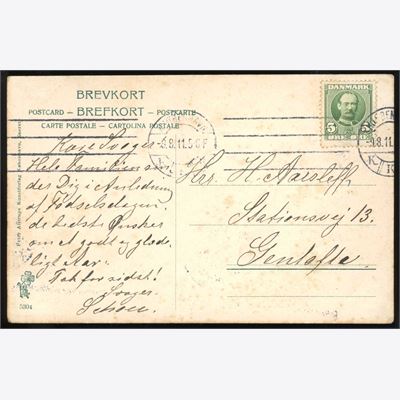 BREVKORT
POSTCARD — BREFKORT — POSTKARTE
CARTE POSTALE — CARTOLINA POSTALE
DANMARK
5 ØRE 5
3.8.11. 5
3.8.11.
Kære Svoger
Hele Familien sen-
der Dig i Anledning
af Fødselsdagen
de bedste Ønsker
om et godt og glæde-
ligt Aar.
Tak for sidst!
Svoger
Hrr. H. Aarsleff
Stationsvej 13.
Gentofte
5304